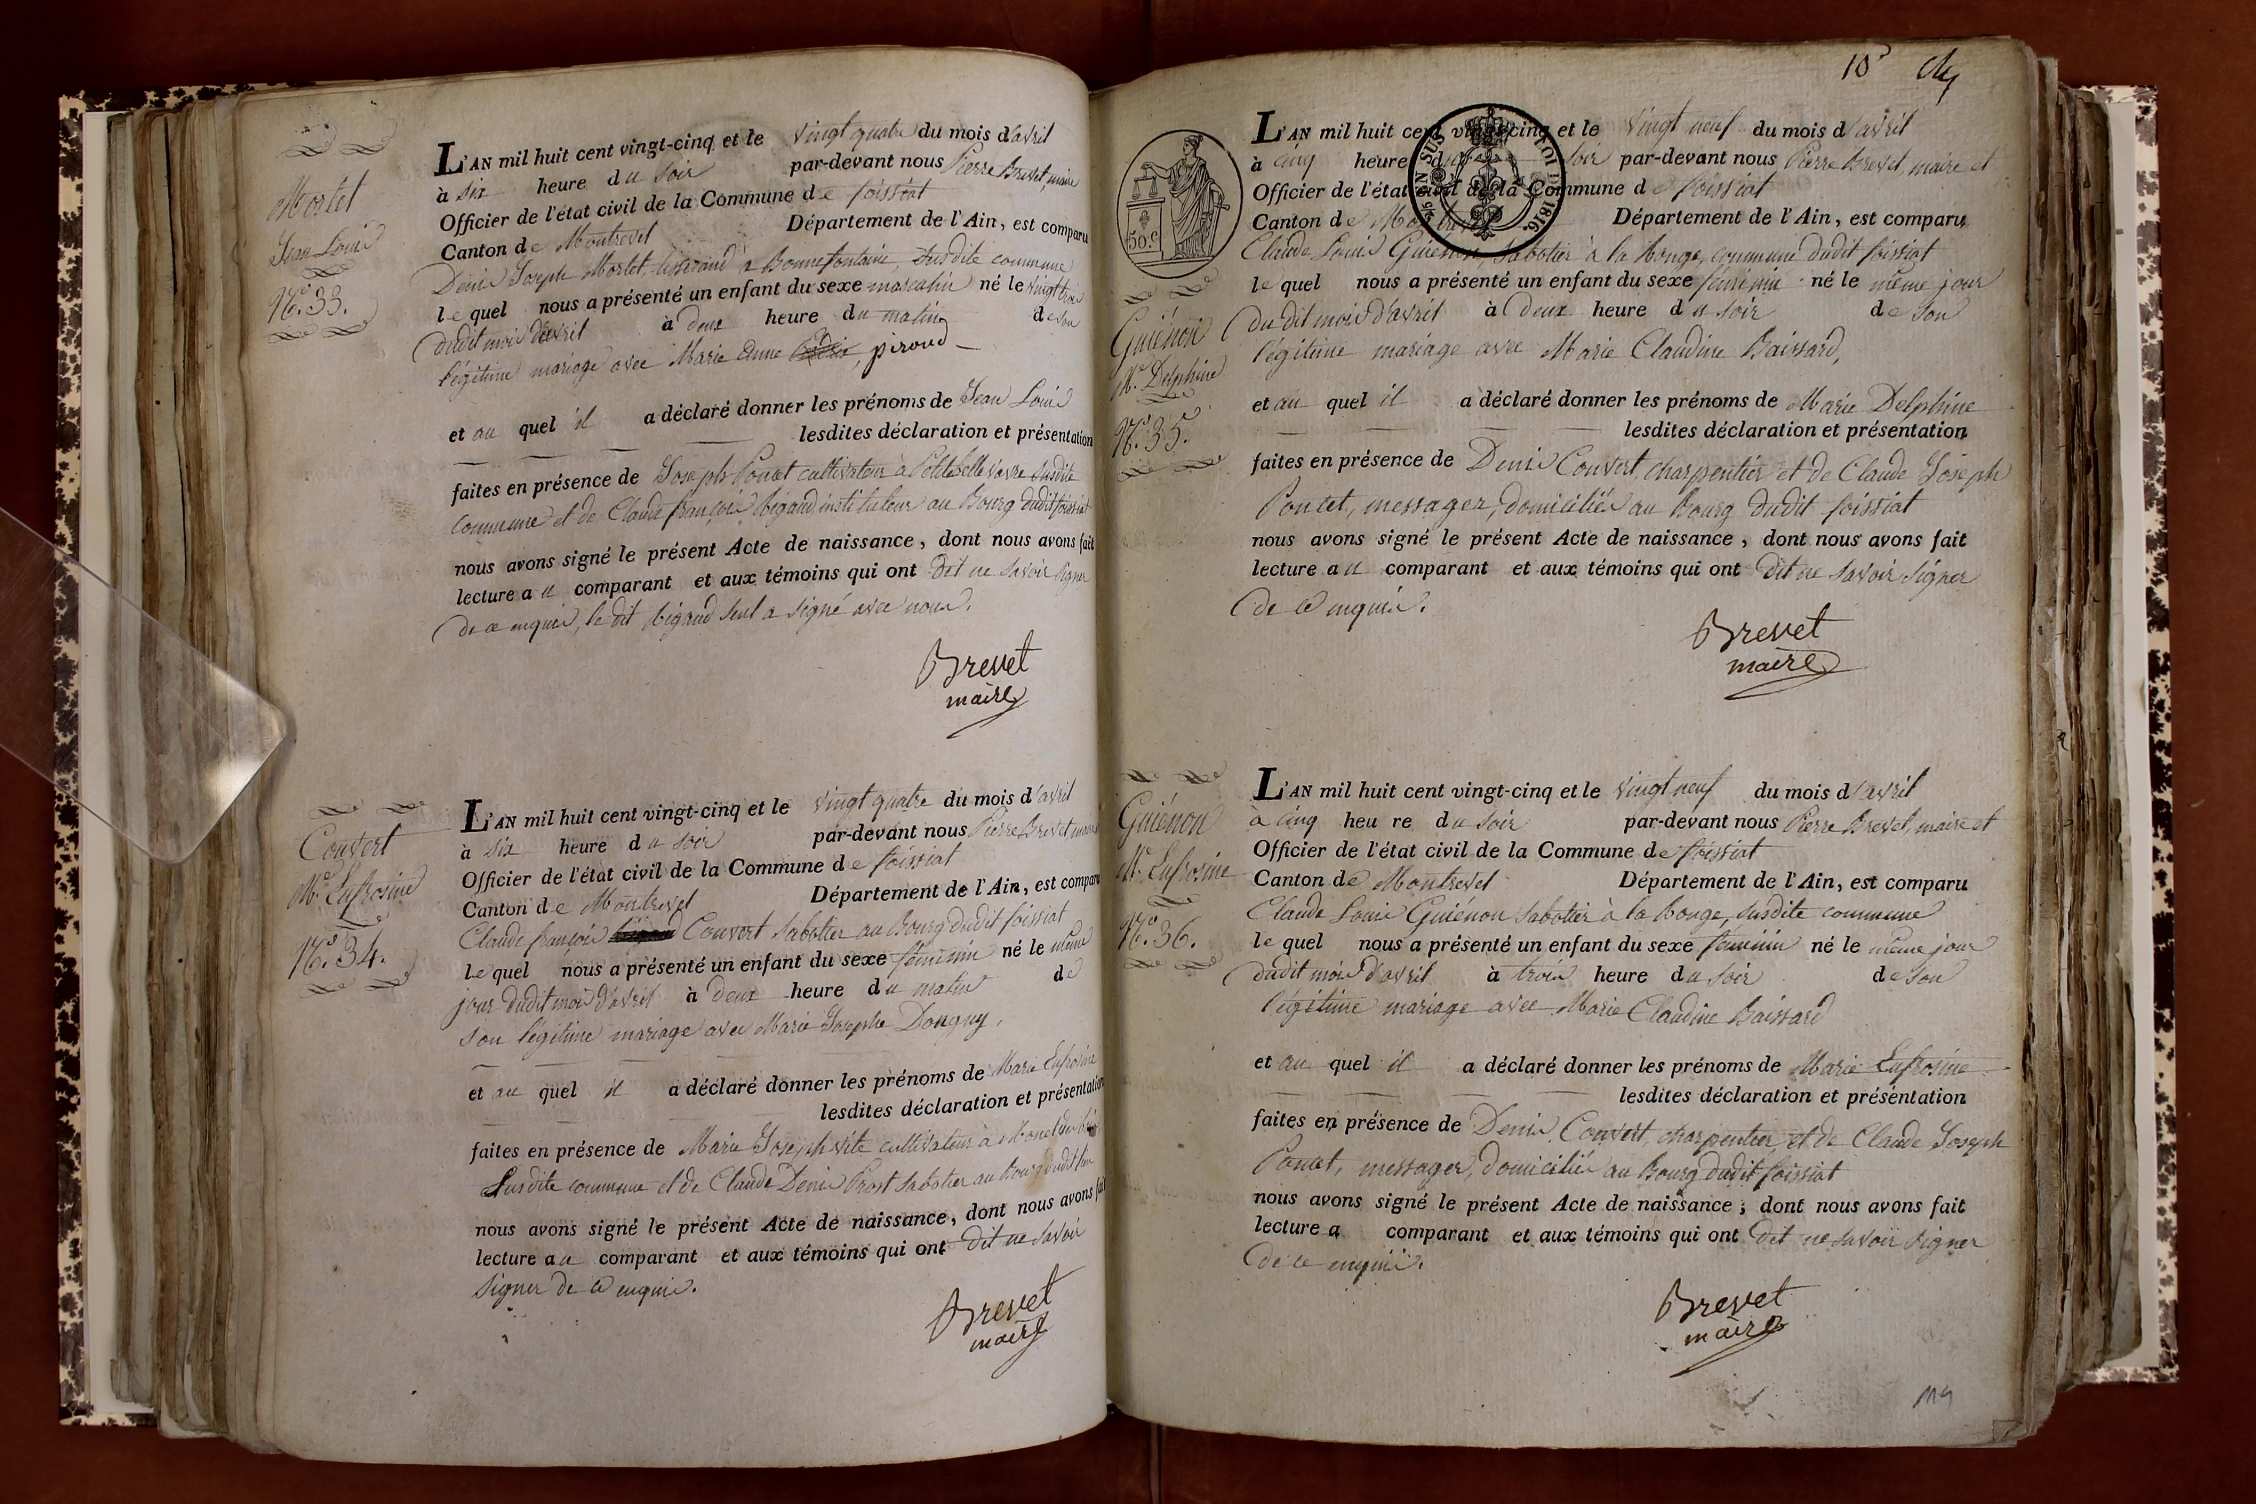 Mortel
Jean Louis
N.° 33.
L'AN mil huit cent vingt-cinq et le vingt quatre du mois d'avril
à six heure du soir par-devant nous Pierre Brevet, maire
Officier de l'état civil de la Commune de foissiat
Canton de Montrevel Département de l'Ain, est comparu
Denis Joseph Mortel, tisserand à Bonnefontaine, susdite commune
lequel nous a présenté un enfant du sexe masculin né le vingt trois
dudit mois d'avril à deux heure du matin de son
légitime mariage avec Marie Anne piroud
et au quel il a déclaré donner les prénoms de Jean Louis
lesdites déclaration et présentation
faites en présence de Joseph Poncet cultivateur à susdite
commune et de Claude françois Rigaud instituteur au Bourg dudit foissiat
nous avons signé le présent Acte de naissance, dont nous avons fait
lecture au comparant et aux témoins qui ont dit ne savoir signer
de ce enquis, le dit Rigaud seul a signé avec nous.
Brevet
maire
Convert
M.e Eufrosine
N.° 34.
L'AN mil huit cent vingt-cinq et le vingt quatre du mois d'avril
à six heure du soir par-devant nous Pierre Brevet maire
Officier de l'état civil de la Commune de foissiat
Canton de Montrevel Département de l'Ain, est comparu
Claude françois Convert sabotier au Bourg dudit foissiat
lequel nous a présenté un enfant du sexe féminin né le même
jour dudit mois d'avril à deux heure du matin de
son légitime mariage avec Marie Josephe Donguy,
et au quel il a déclaré donner les prénoms de Marie Eufrosine
lesdites déclaration et présentation
faites en présence de Marie Joseph vite cultivateur à
susdite commune et de Claude Denis Prost sabotier au Bourg dudit
nous avons signé le présent Acte de naissance, dont nous avons fait
lecture au comparant et aux témoins qui ont dit ne savoir
signer de ce enquis.
Brevet
maire
10
50.c
Guiénon
M.e Delphine
N.° 35.
L'AN mil huit cent vingt-cinq et le vingt neuf du mois d'avril
à cinq heure du soir par-devant nous Pierre Brevet, maire et
Officier de l'état civil de la Commune de foissiat
Canton de Montrevel Département de l'Ain, est comparu
Claude Louis Guiénon, sabotier à la Ronge, commune dudit foissiat
lequel nous a présenté un enfant du sexe féminin né le même jour
du dit mois d'avril à deux heure du soir de son
légitime mariage avec Marie Claudine Baissard,
et au quel il a déclaré donner les prénoms de Marie Delphine
lesdites déclaration et présentation
faites en présence de Denis Convert, charpentier et de Claude Joseph
Poncet, messager, domiciliés au Bourg dudit foissiat
nous avons signé le présent Acte de naissance, dont nous avons fait
lecture au comparant et aux témoins qui ont dit ne savoir signer
de ce enquis.
Brevet
maire
Guiénon
M.e Eufrosine
N.° 36.
L'AN mil huit cent vingt-cinq et le vingt neuf du mois d'avril
à cinq heure du soir par-devant nous Pierre Brevet, maire et
Officier de l'état civil de la Commune de foissiat
Canton de Montrevel Département de l'Ain, est comparu
Claude Louis Guiénon sabotier à la Ronge, susdite commune
lequel nous a présenté un enfant du sexe féminin né le même jour
dudit mois d'avril à trois heure du soir de son
légitime mariage avec Marie Claudine Baissard
et au quel il a déclaré donner les prénoms de Marie Eufrosine
lesdites déclaration et présentation
faites en présence de Denis Convert, charpentier, et de Claude Joseph
Poncet, messager, domiciliés au Bourg dudit foissiat
nous avons signé le présent Acte de naissance, dont nous avons fait
lecture a comparant et aux témoins qui ont dit ne savoir signer
de ce enquis.
Brevet
maire